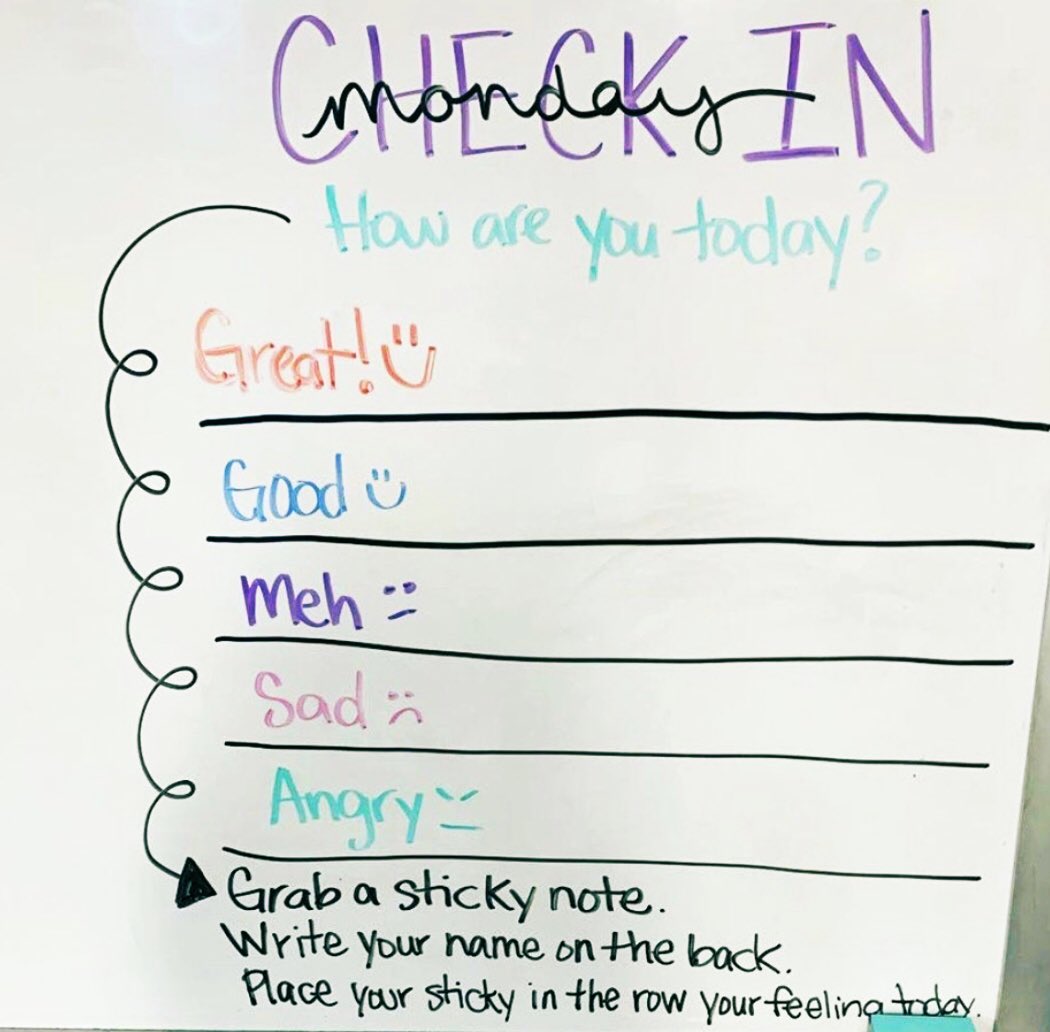 CHECK IN
monday
How are you today?
Great!
Good
Meh
Sad
Angry
Grab a sticky note.
Write your name on the back.
Place your sticky in the row your feeling today.